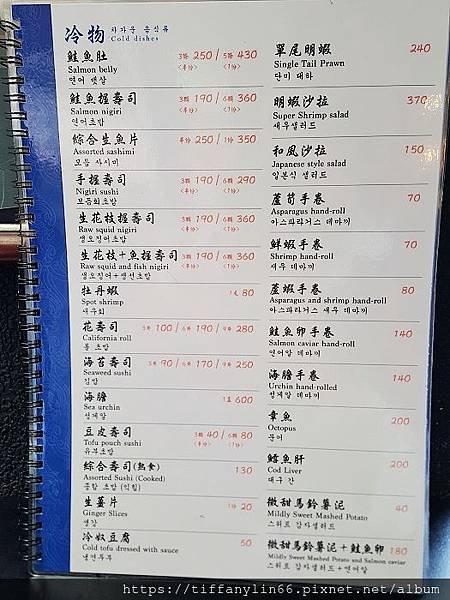 冷物 차가운 음식류
Cold dishes
鮭魚肚 3路 250 / 5路 430
Salmon belly <半份> <1份>
연어 뱃살
鮭魚握壽司 3顆 190 / 6顆 360
Salmon nigiri <半份> <1份>
연어초밥
綜合生魚片 半份 250 / 1份 350
Assorted sashimi
모듬 사시미
手握壽司 3顆 190 / 6顆 290
Nigiri sushi <半份> <1份>
모듬회초밥
生花枝握壽司 3顆 190 / 6顆 360
Raw squid nigiri <半份> <1份>
생오징어초밥
生花枝+魚握壽司 3顆 190 / 6顆 360
Raw squid and fish nigiri <半份> <1份>
생오징어+생선초밥
牡丹蝦 80
Spot shrimp
새우회
花壽司 100 / 190 / 280
California roll
롤 초밥
海苔壽司 90 / 170 / 250
Seaweed sushi
김밥
海膽 600
Sea urchin
성게알
豆皮壽司 3顆 40 / 6顆 80
Tofu pouch sushi <半份> <1份>
유부초밥
綜合壽司(熟食) 130
Assorted Sushi (Cooked)
종합 초밥 (익힘)
生薑片 1份 20
Ginger Slices
생강
冷奴豆腐 50
Cold tofu dressed with sauce
냉연두부
單尾明蝦 240
Single Tail Prawn
단미 대하
明蝦沙拉 370
Super Shrimp salad
새우샐러드
和風沙拉 150
Japanese style salad
일본식 샐러드
蘆筍手卷 70
Asparagus hand-roll
아스파라거스 데마끼
鮮蝦手卷 70
Shrimp hand-roll
새우 데마끼
蘆蝦手卷 80
Asparagus and shrimp hand-roll
아스파라거스 새우 데마끼
鮭魚卵手卷 140
Salmon caviar hand-roll
연어알 데마끼
海膽手卷 140
Urchin hand-rolled
성게알 데마끼
章魚 200
Octopus
문어
鱈魚肝 200
Cod Liver
대구 간
微甜馬鈴薯泥 40
Mildly Sweet Mashed Potato
스위트 감자샐러드
微甜馬鈴薯泥+鮭魚卵 180
Mildly Sweet Mashed Potato and Salmon caviar
스위트 감자샐러드+연어알
https://tiffanylin66.pixnet.net/album